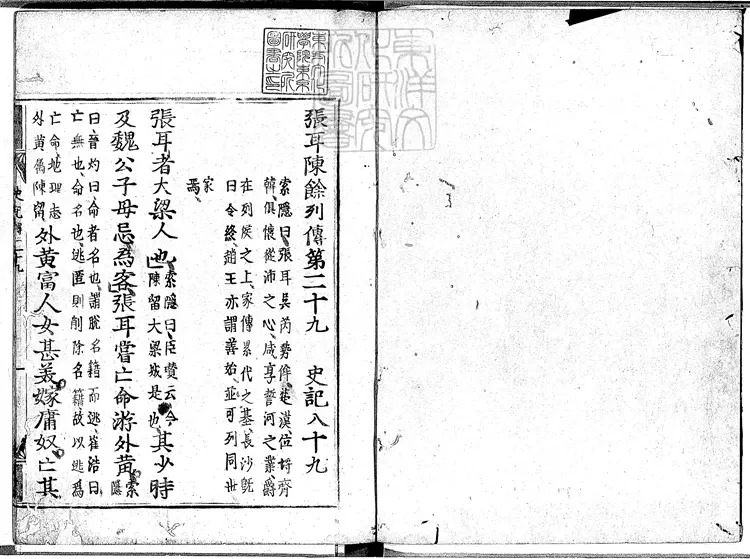 張耳陳餘列傳第二十九 史記八十九
索隱曰張耳吳芮勢侔楚漢位埒齊
韓俱懷從沛之心咸享誓河之業爵
在列侯之上家傳累代之基長沙既
曰令終趙王亦謂善始並可列同世
家焉
張耳者大梁人也索隱曰臣瓚云今陳留大梁城是也其少時
及魏公子毋忌為客張耳嘗亡命游外黃索隱
曰晉灼曰命者名也謂脫名籍而逃崔浩曰
亡無也命名也逃匿則削除名籍故以逃為
亡命地理志外黃屬陳留外黃富人女甚美嫁庸奴亡其
史記 二十九
東洋文化學院東京研究所圖書之印